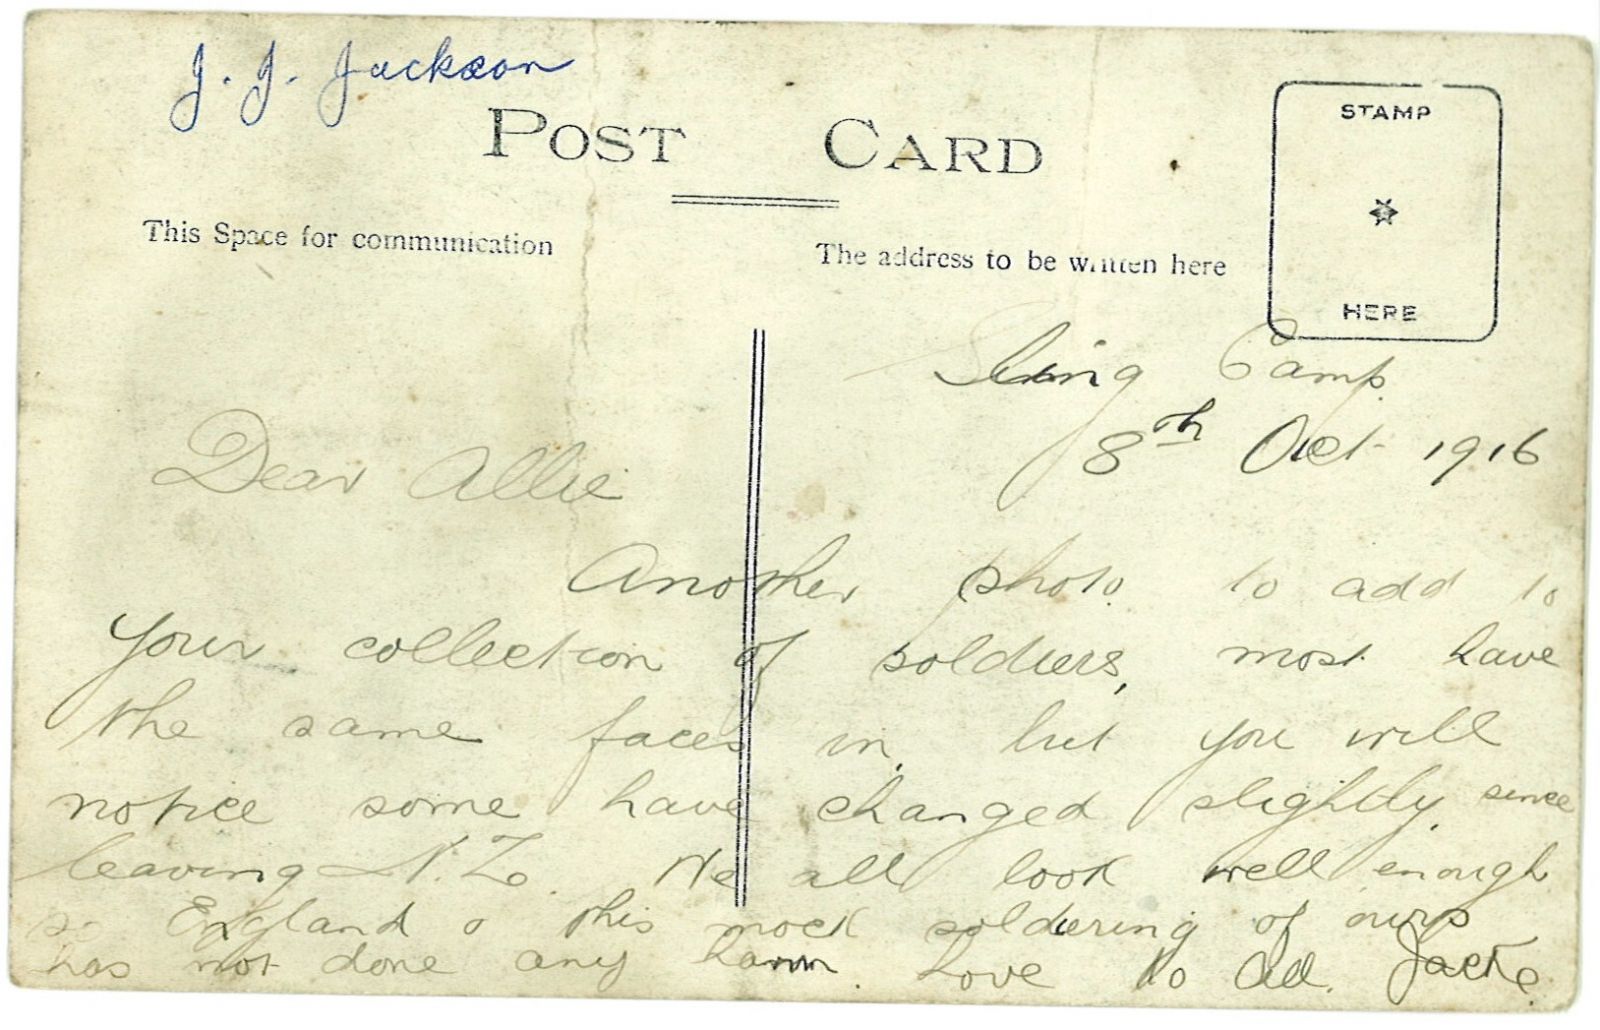 J. J. Jackson
POST CARD
STAMP
HERE
This Space for communication
The address to be written here
Sling Camp
8th Oct 1916
Dear Allie
Another photo to add to
your collection of soldiers, most have
the same faces in, but you will
notice some have changed slightly since
leaving N.Z. We all look well enough
so England & this mock soldiering of ours
has not done any harm. Love to all. Jack